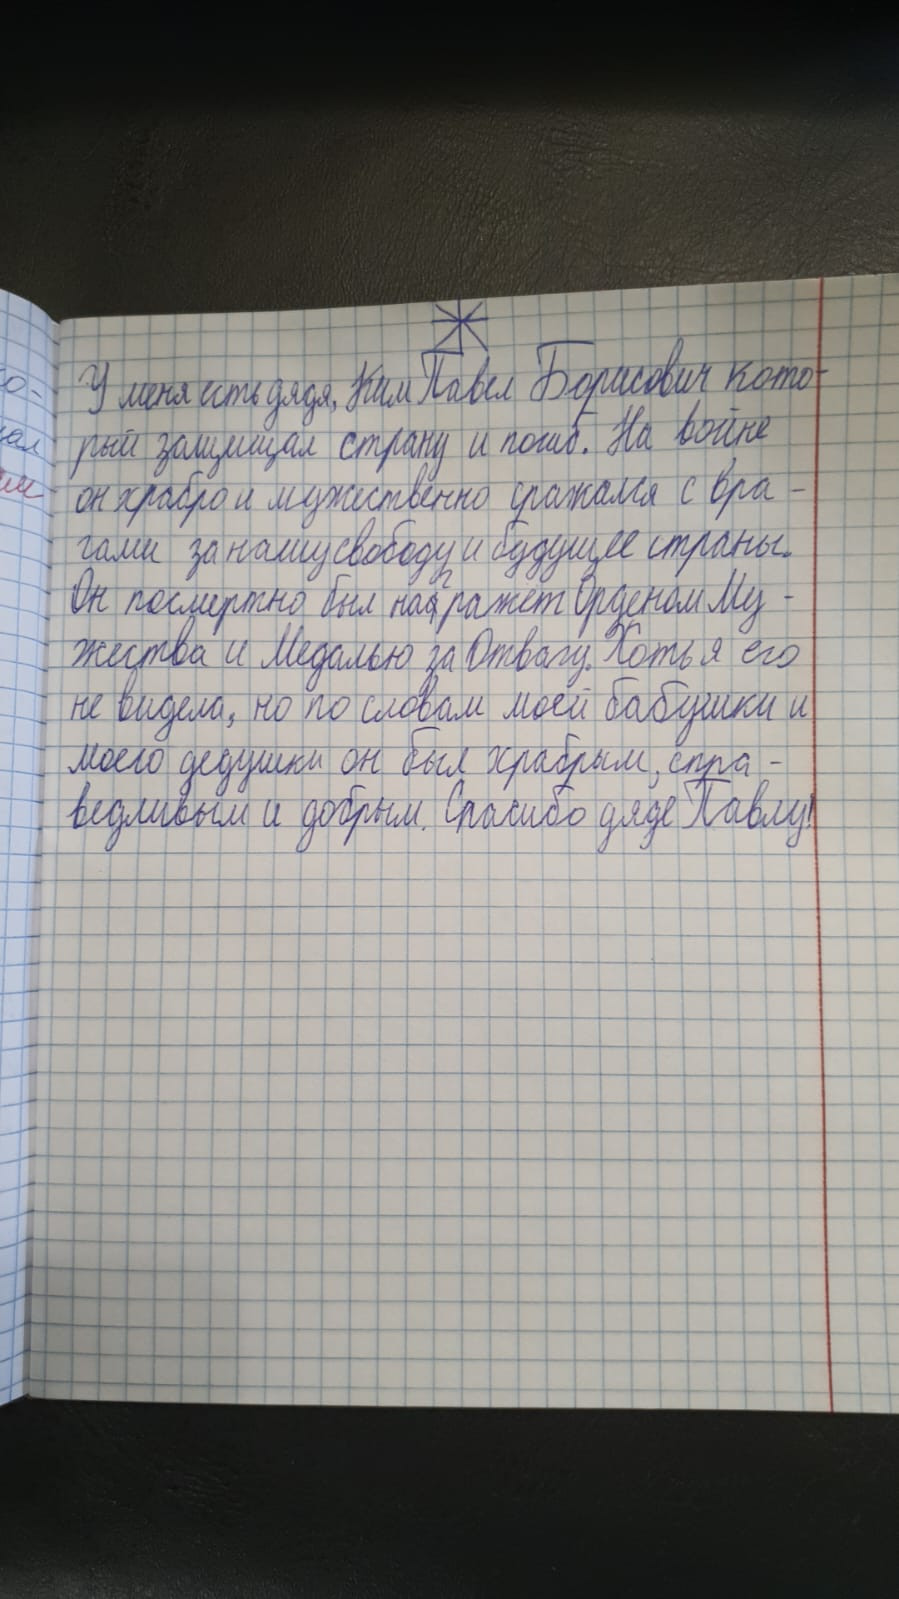 У меня есть дядя, Ким Павел Борисович кото-
рый защищал страну и погиб. На войне
он храбро и мужественно сражался с вра-
гами за нашу свободу и будущее страны.
Он посмертно был награжет Орденом Му-
жества и Медалью за Отвагу. Хоть я его
не видела, но по словам моей бабушки и
моего дедушки он был храбрым, спра-
ведливым и добрым. Спасибо дяде Павлу!